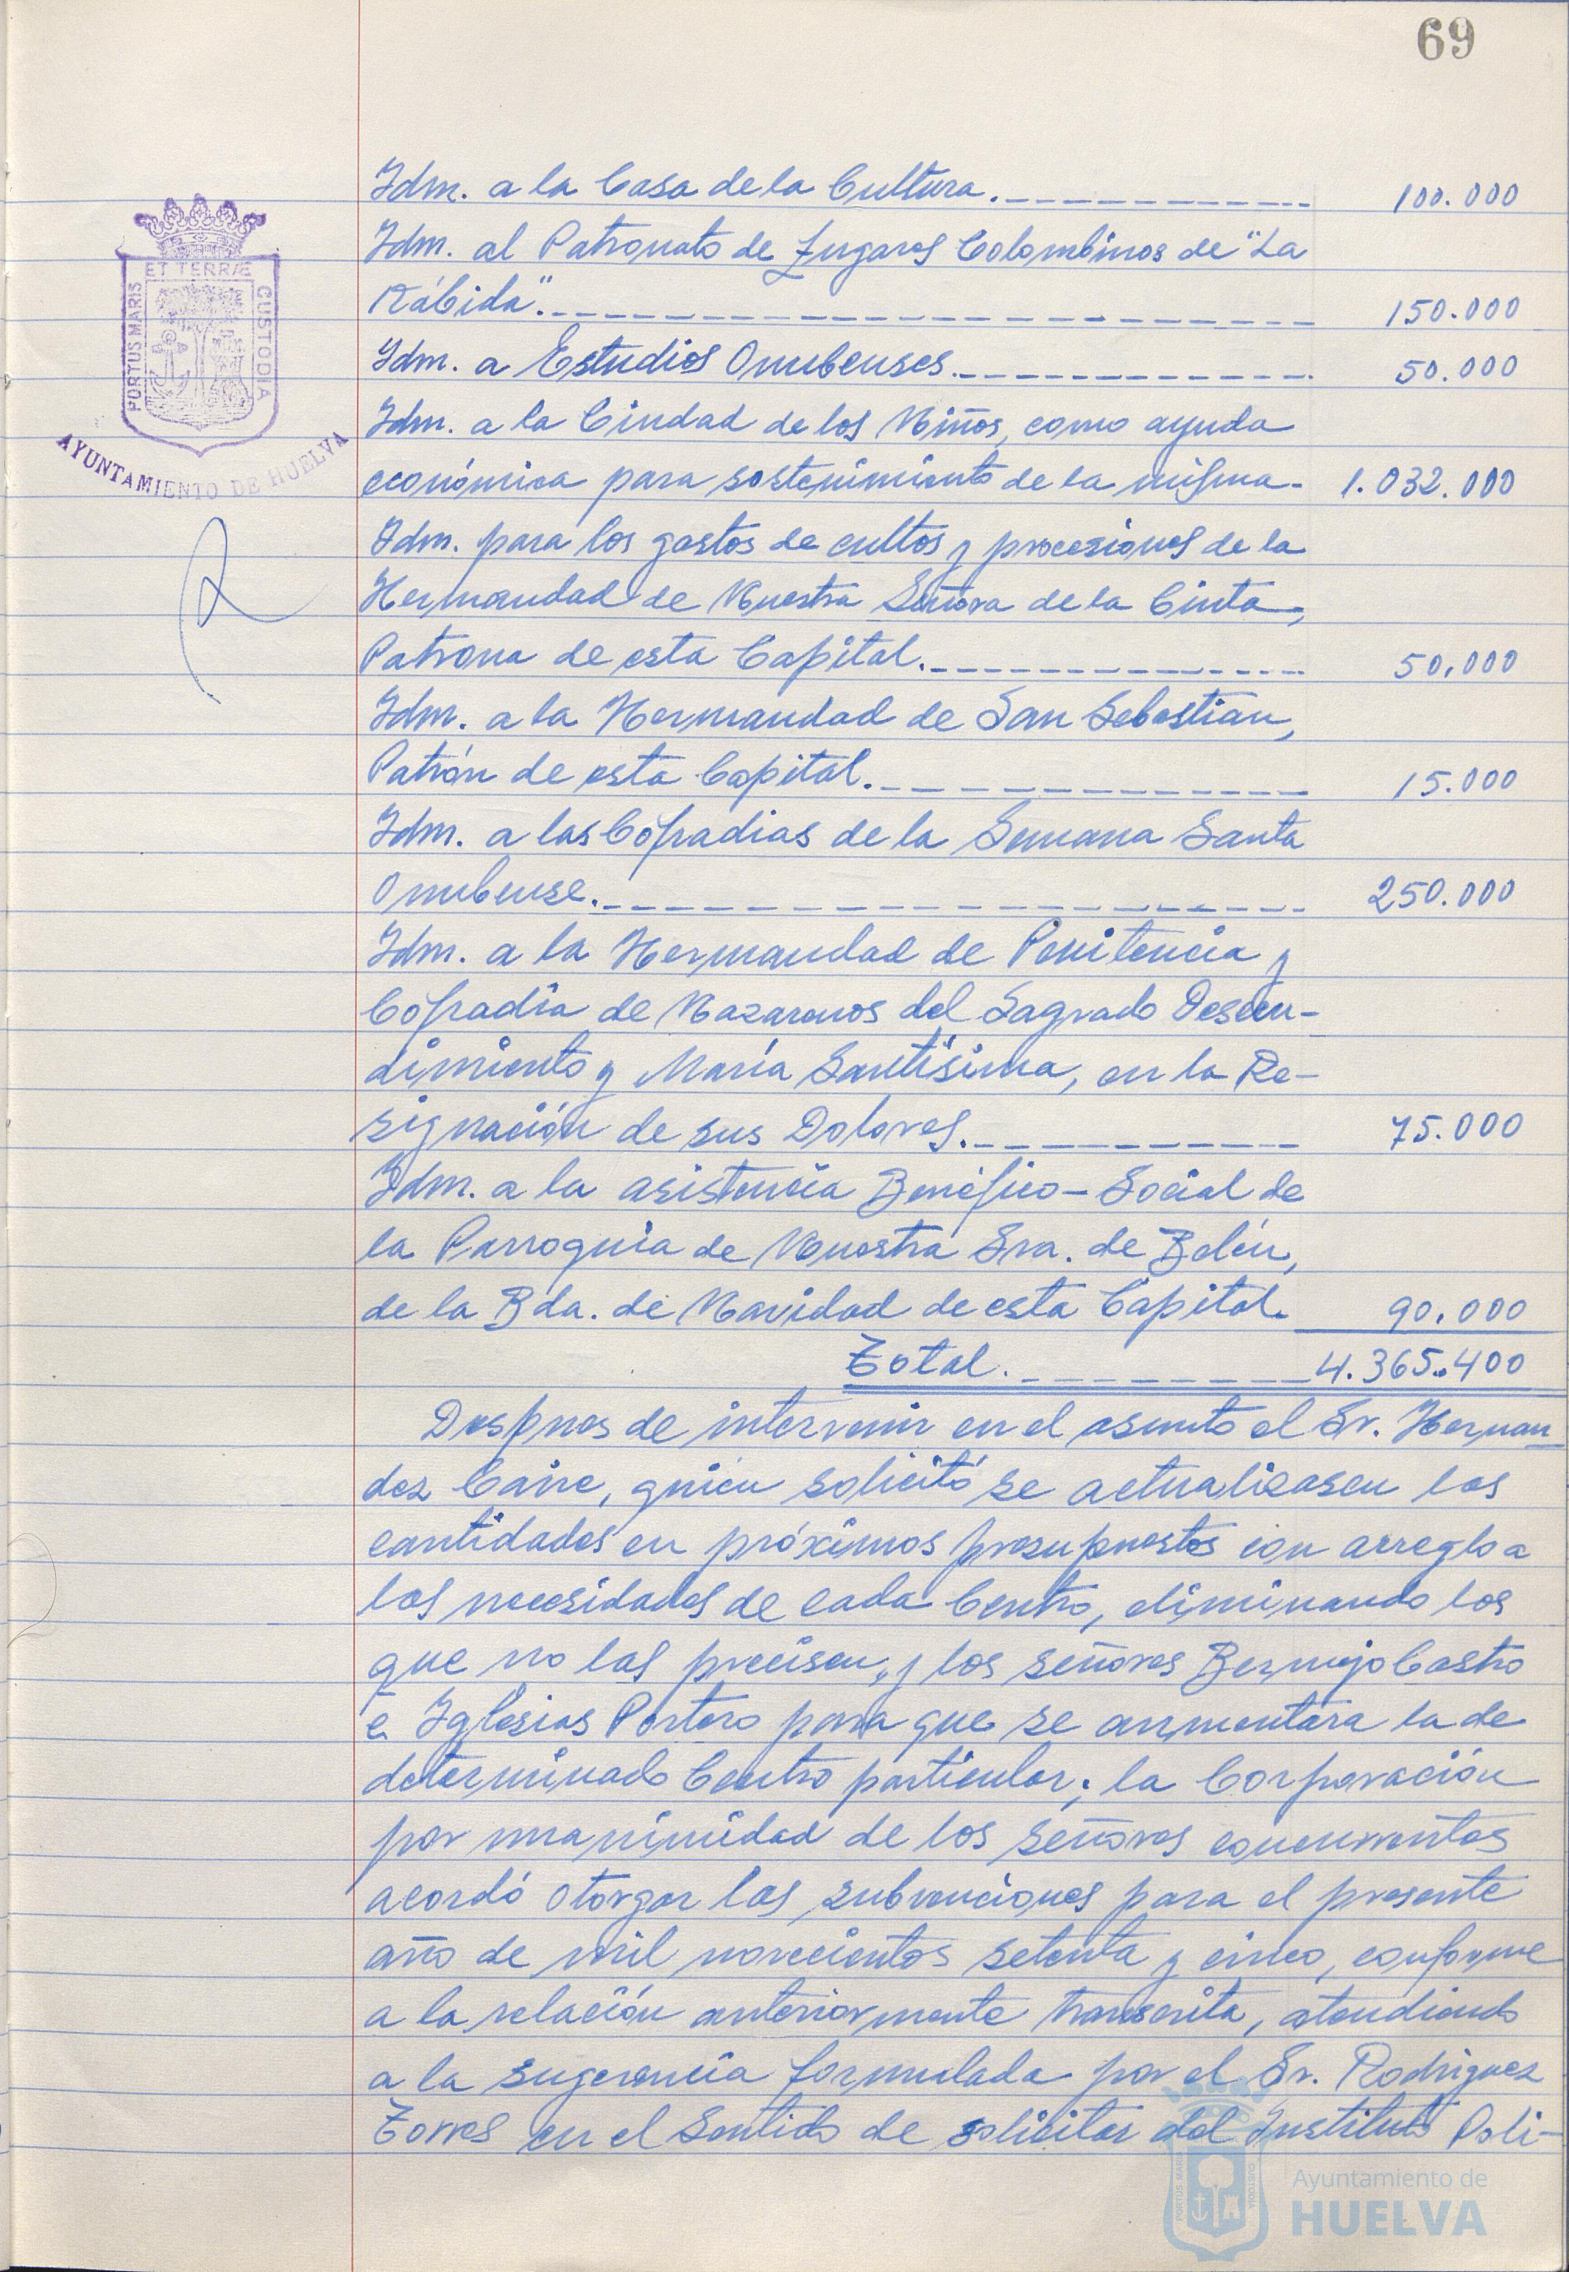 69
ET TERRÆ
PORTUS MARIS
CUSTODIA
AYUNTAMIENTO DE HUELVA
Idm. a la Casa de la Cultura. 100.000
Idm. al Patronato de Lugares Colombinos de "La
Rábida". 150.000
Idm. a Estudios Onubenses. 50.000
Idm. a la Ciudad de los Niños, como ayuda
económica para sostenimiento de la misma. 1.032.000
Idm. para los gastos de cultos y procesiones de la
Hermandad de Nuestra Señora de la Cinta,
Patrona de esta Capital. 50.000
Idm. a la Hermandad de San Sebastian,
Patrón de esta Capital. 15.000
Idm. a las Cofradias de la Semana Santa
Onubense. 250.000
Idm. a la Hermandad de Penitencia y
Cofradía de Nazarenos del Sagrado Descen-
dimiento y María Santísima, en la Re-
signación de sus Dolores. 75.000
Idm. a la asistencia Benéfico-Social de
la Parroquia de Nuestra Sra. de Belén,
de la Bda. de Navidad de esta Capital. 90.000
Total. 4.365.400
Despues de intervenir en el asunto el Sr. Hernan
dez Caire, quién solicitó se actualizasen las
cantidades en próximos presupuestos con arreglo a
las necesidades de cada Centro, eliminando los
que no las precisen, y los señores Bermejo Castro
e Iglesias Portero para que se aumentara la de
determinado Centro particular; la Corporación
por unanimidad de los señores concurrentes
acordó otorgar las subvenciones para el presente
año de mil novecientos setenta y cinco, conforme
a la relación anteriormente transcrita, atendiendo
a la sugerencia formulada por el Sr. Rodriguez
Torres en el sentido de solicitar del Instituto Poli-
PORTUS MARIS
CUSTODIA
Ayuntamiento de
HUELVA